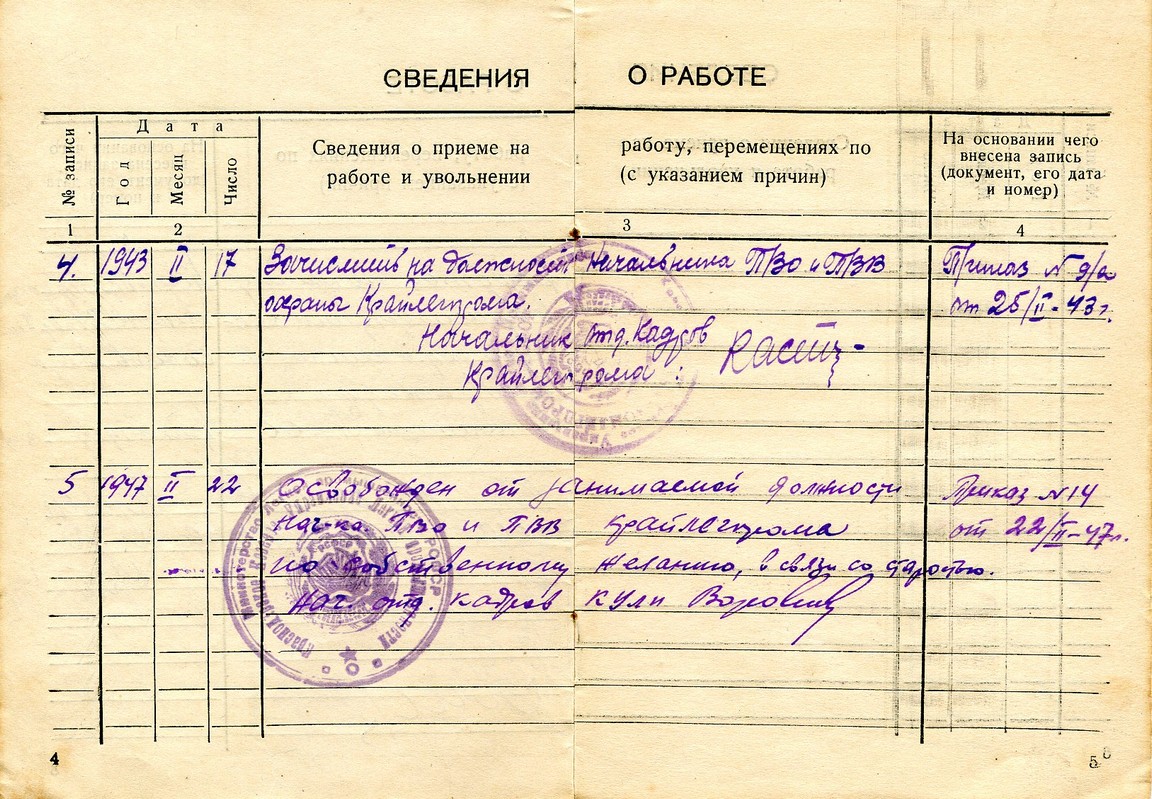 СВЕДЕНИЯ О РАБОТЕ
№ записи
Дата
Год
Месяц
Число
Сведения о приеме на работу, перемещениях по
работе и увольнении (с указанием причин)
На основании чего
внесена запись
(документ, его дата
и номер)
1 2 3 4
4. 1943 II 17 Зачислить на должность Начальника ПВО и ПВВ Приказ N
охраны Крайлегпрома. от 25/II-43г.
Начальник отд. Кадров
Крайлегпрома:
5 1947 II 22 Освобожден от занимаемой должности Приказ N14
Нач-ка ПВО и ПВВ Крайлегпрома от 22/II-47г.
по собственному желанию, в связи со старостью.
Нач. отд. кадров
4 5